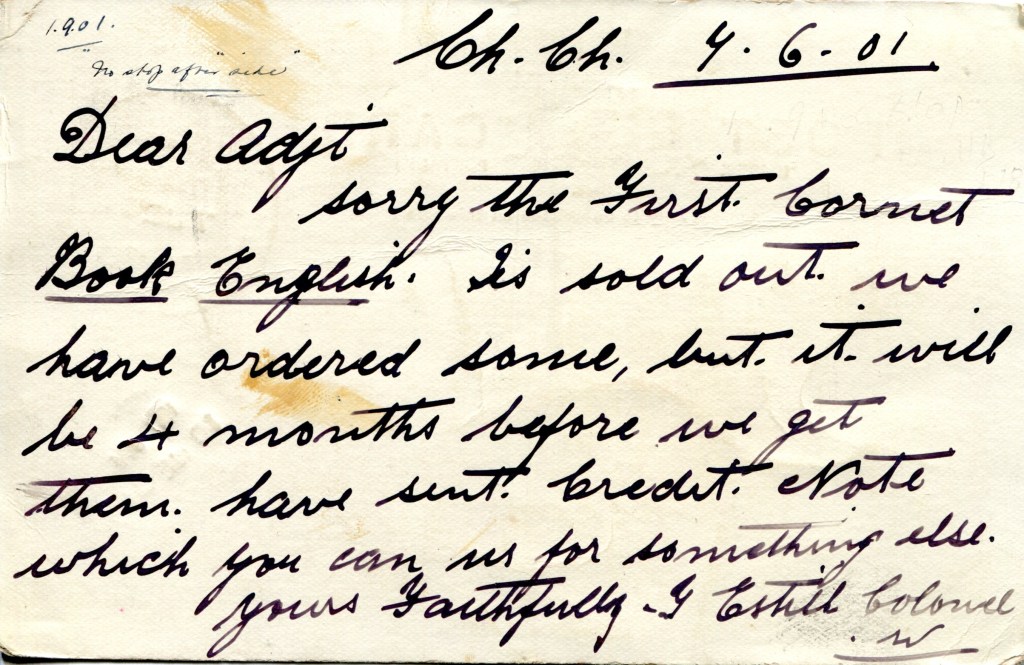 1.9.01.
"No stop after "side"
Ch. Ch. 7. 6 - 01.
Dear Adjt
sorry the First. Cornet
Book English. Is sold out. we
have ordered some, but. it. will
be 4 months before we get
them. have sent. Credit. Note
which you can us for something else.
yours Faithfully - Estill Colonel